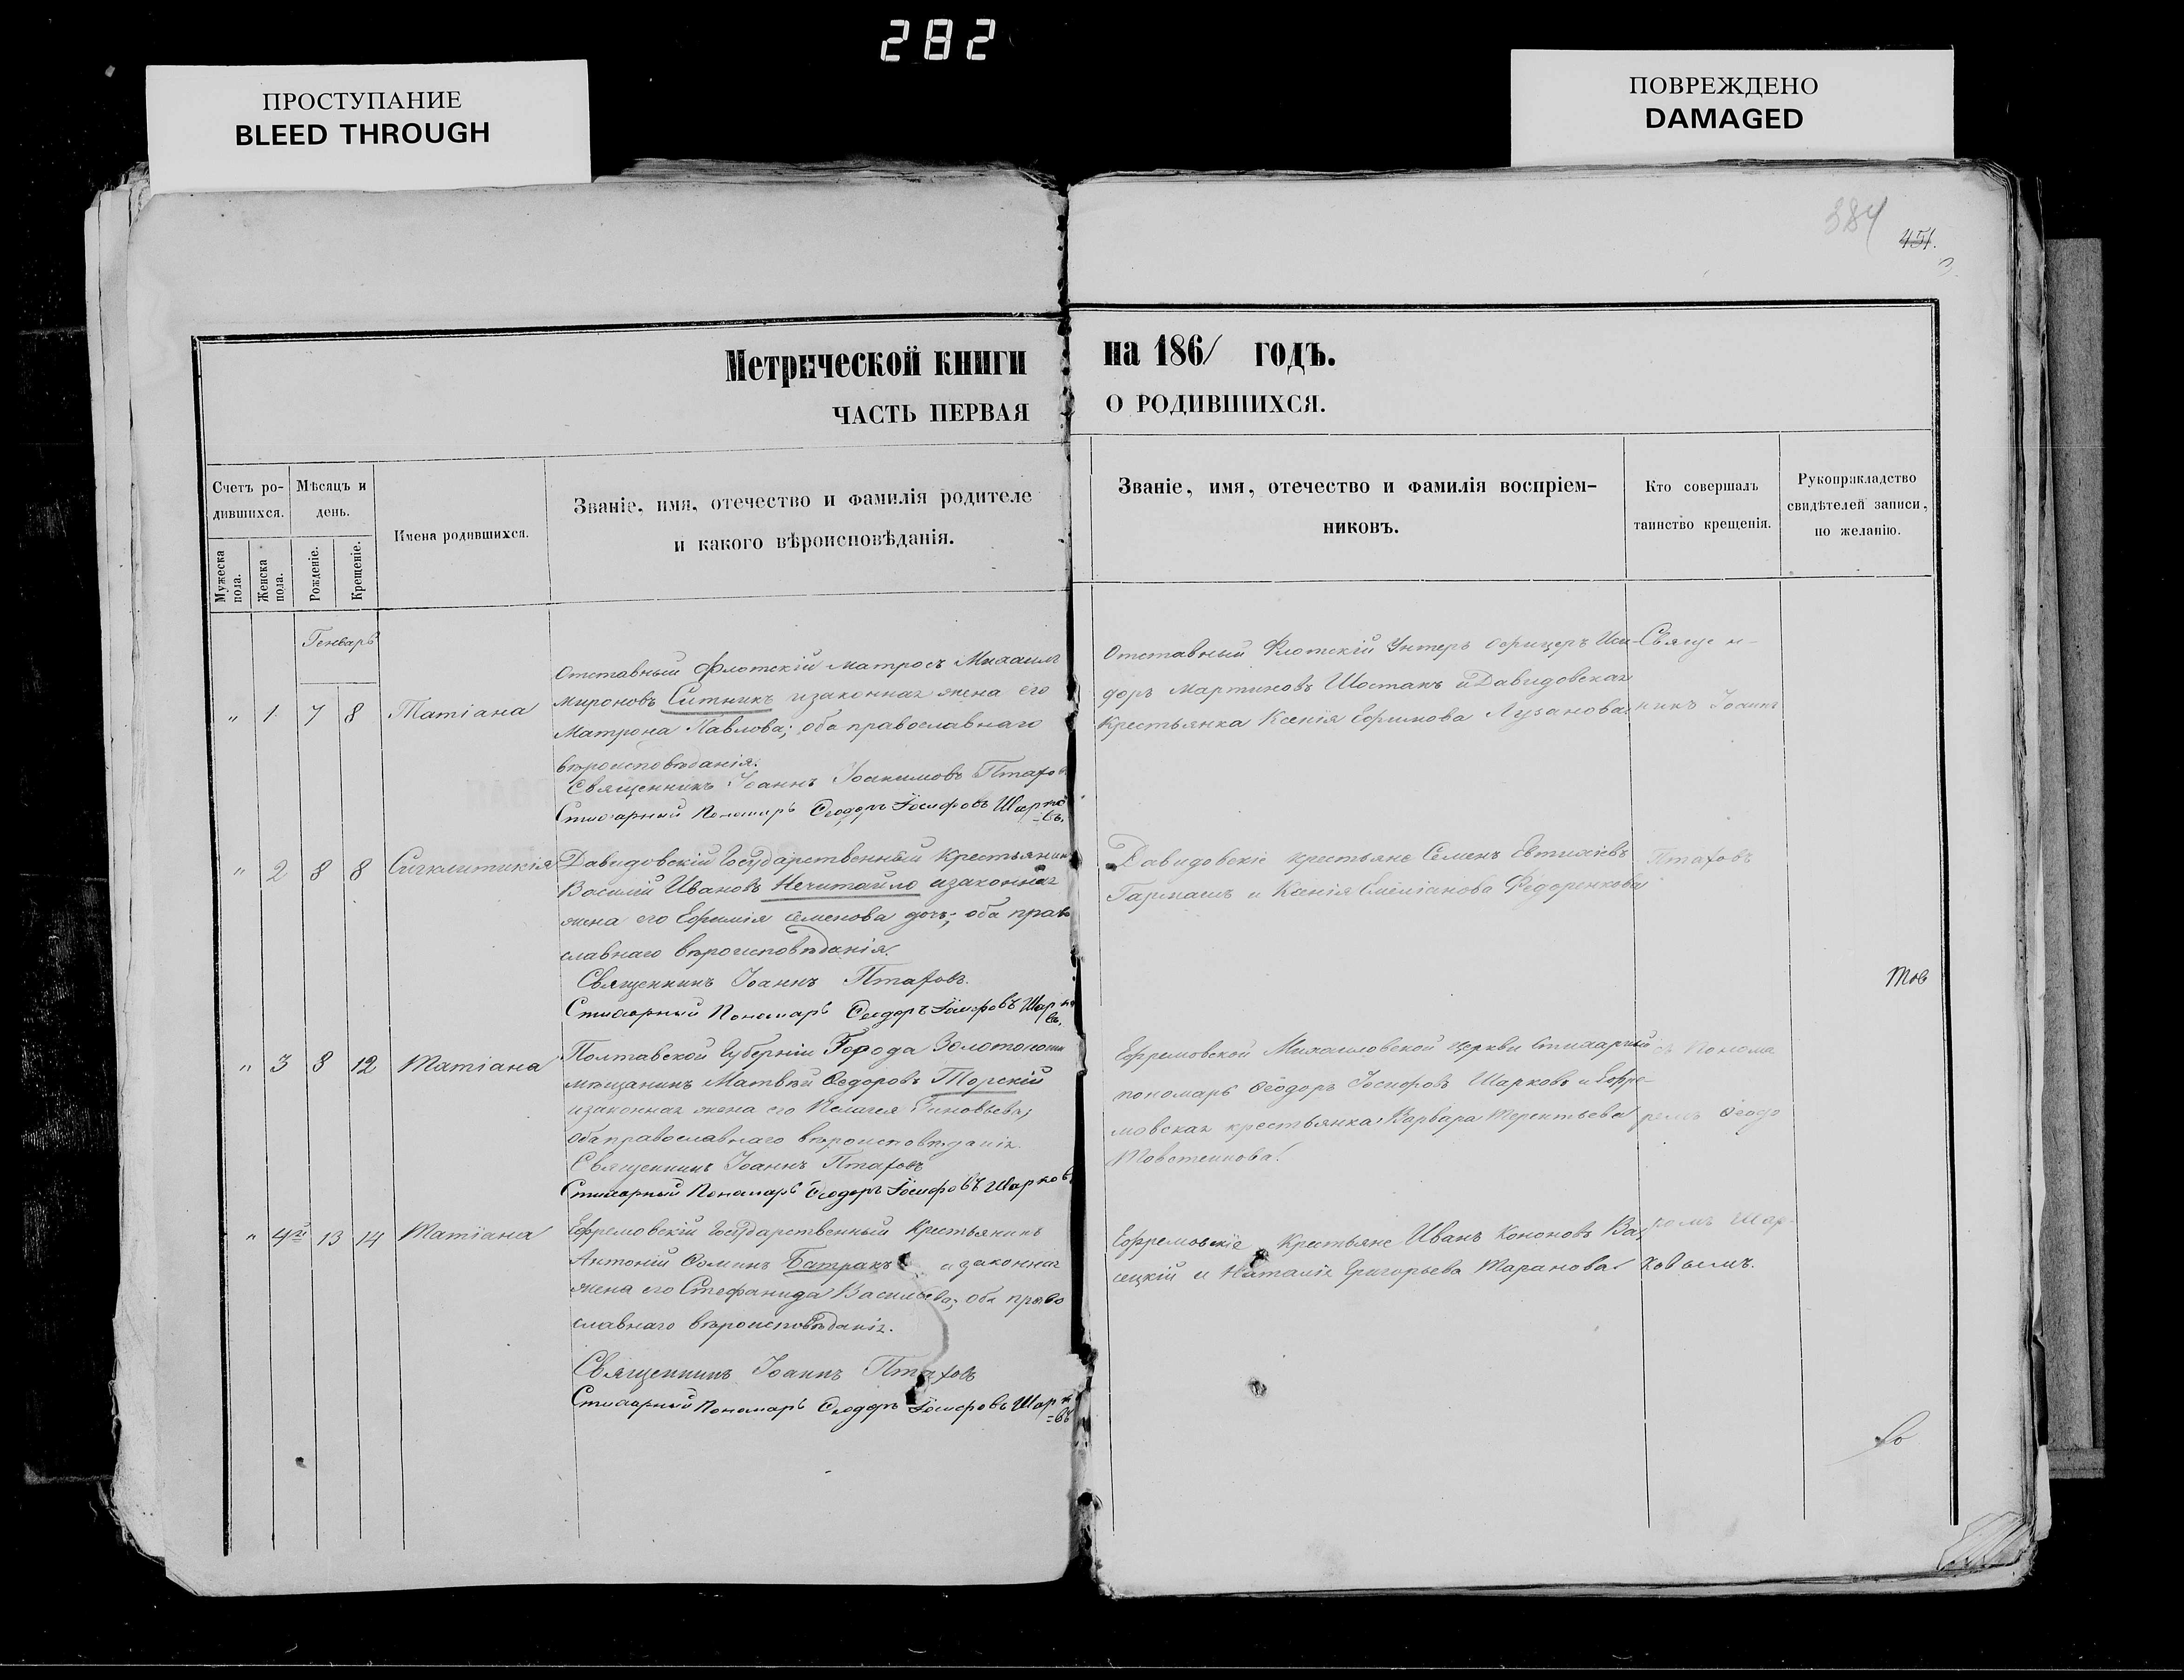 282
ПРОСТУПАНИЕ
BLEED THROUGH
ПОВРЕЖДЕНО
DAMAGED
384
451.
3.
Метрической книги
ЧАСТЬ ПЕРВАЯ
на 186/ годъ.
О РОДИВШИХСЯ.
Счетъ ро-
дившихся.
Мужеска
пола.
Женска
пола.
Мѣсяцъ и
день.
Рожденіе.
Крещеніе.
Имена родившихся.
Званіе, имя, отечество и фамилія родителе
и какого вѣроисповѣданія.
Званіе, имя, отечество и фамилія воспріем-
никовъ.
Кто совершалъ
таинство крещенія.
Рукоприкладство
свидѣтелей записи,
по желанію.
Генварь
" 1 7 8 Татіана
Отставный Флотскій матросъ Михаилъ
Мироновъ Ситникъ и законная жена его
Матрона Павлова; оба православнаго
вѣроисповѣданія.
Священникъ Іоаннъ Іоакимовъ Птахов
Стихарный Пономарь Ѳеодоръ Іосифовъ Шарко
-въ.
Отставный Флотскій Унтеръ Офицеръ Иси-
доръ Мартиновъ Шостакъ и Давидовская
Крестьянка Ксенія Ефимова Лузановая
Священ-
никъ Іоаннъ
" 2 8 8 Сигклитикія
Давидовскій Государственный Крестьянин
Василій Ивановъ Нечитайло и законная
жена его Ефимія Семенова дочь; оба право
славнаго вѣроисповѣданія.
Священникъ Іоаннъ Птаховъ.
Стихарный Пономарь Ѳеодоръ Іосифовъ Шарко
въ.
Давидовскіе крестьяне Семенъ Евтихіевъ
Гармашъ и Ксенія Емеліанова Федоренкова
Птаховъ
Тов
" 3 8 12 Татіана
Полтавской Губерніи Города Золотоноши
мѣщанинъ Матвѣй Ѳедоровъ Торскій
и законная жена его Пелагея Зиновьева;
оба православнаго вѣроисповѣданія.
Священникъ Іоаннъ Птаховъ
Стихарный Пономарь Ѳеодоръ Іосифовъ Шарков
Ефремовской Михаиловской церкви Стихарный
пономарь Ѳеодоръ Іосифовъ Шарковъ и Ефре-
мовская крестьянка Варвара Терентьева
Товстенкова.
съ Понома
ремъ Ѳеодо
" 4й 13 14 Татіана
Ефремовскій Государственный Крестьянинъ
Антоній Ѳоминъ Батракъ и законная
жена его Стефанида Васильева; оба право
славнаго вѣроисповѣданія.
Священникъ Іоаннъ Птаховъ
Стихарный Пономарь Ѳеодоръ Іосифовъ Шарко
=въ
Ефремовскіе Крестьяне Иванъ Кононовъ Ва
сецкій и Наталія Григорьева Таранова
ромъ Шар-
ковымъ.